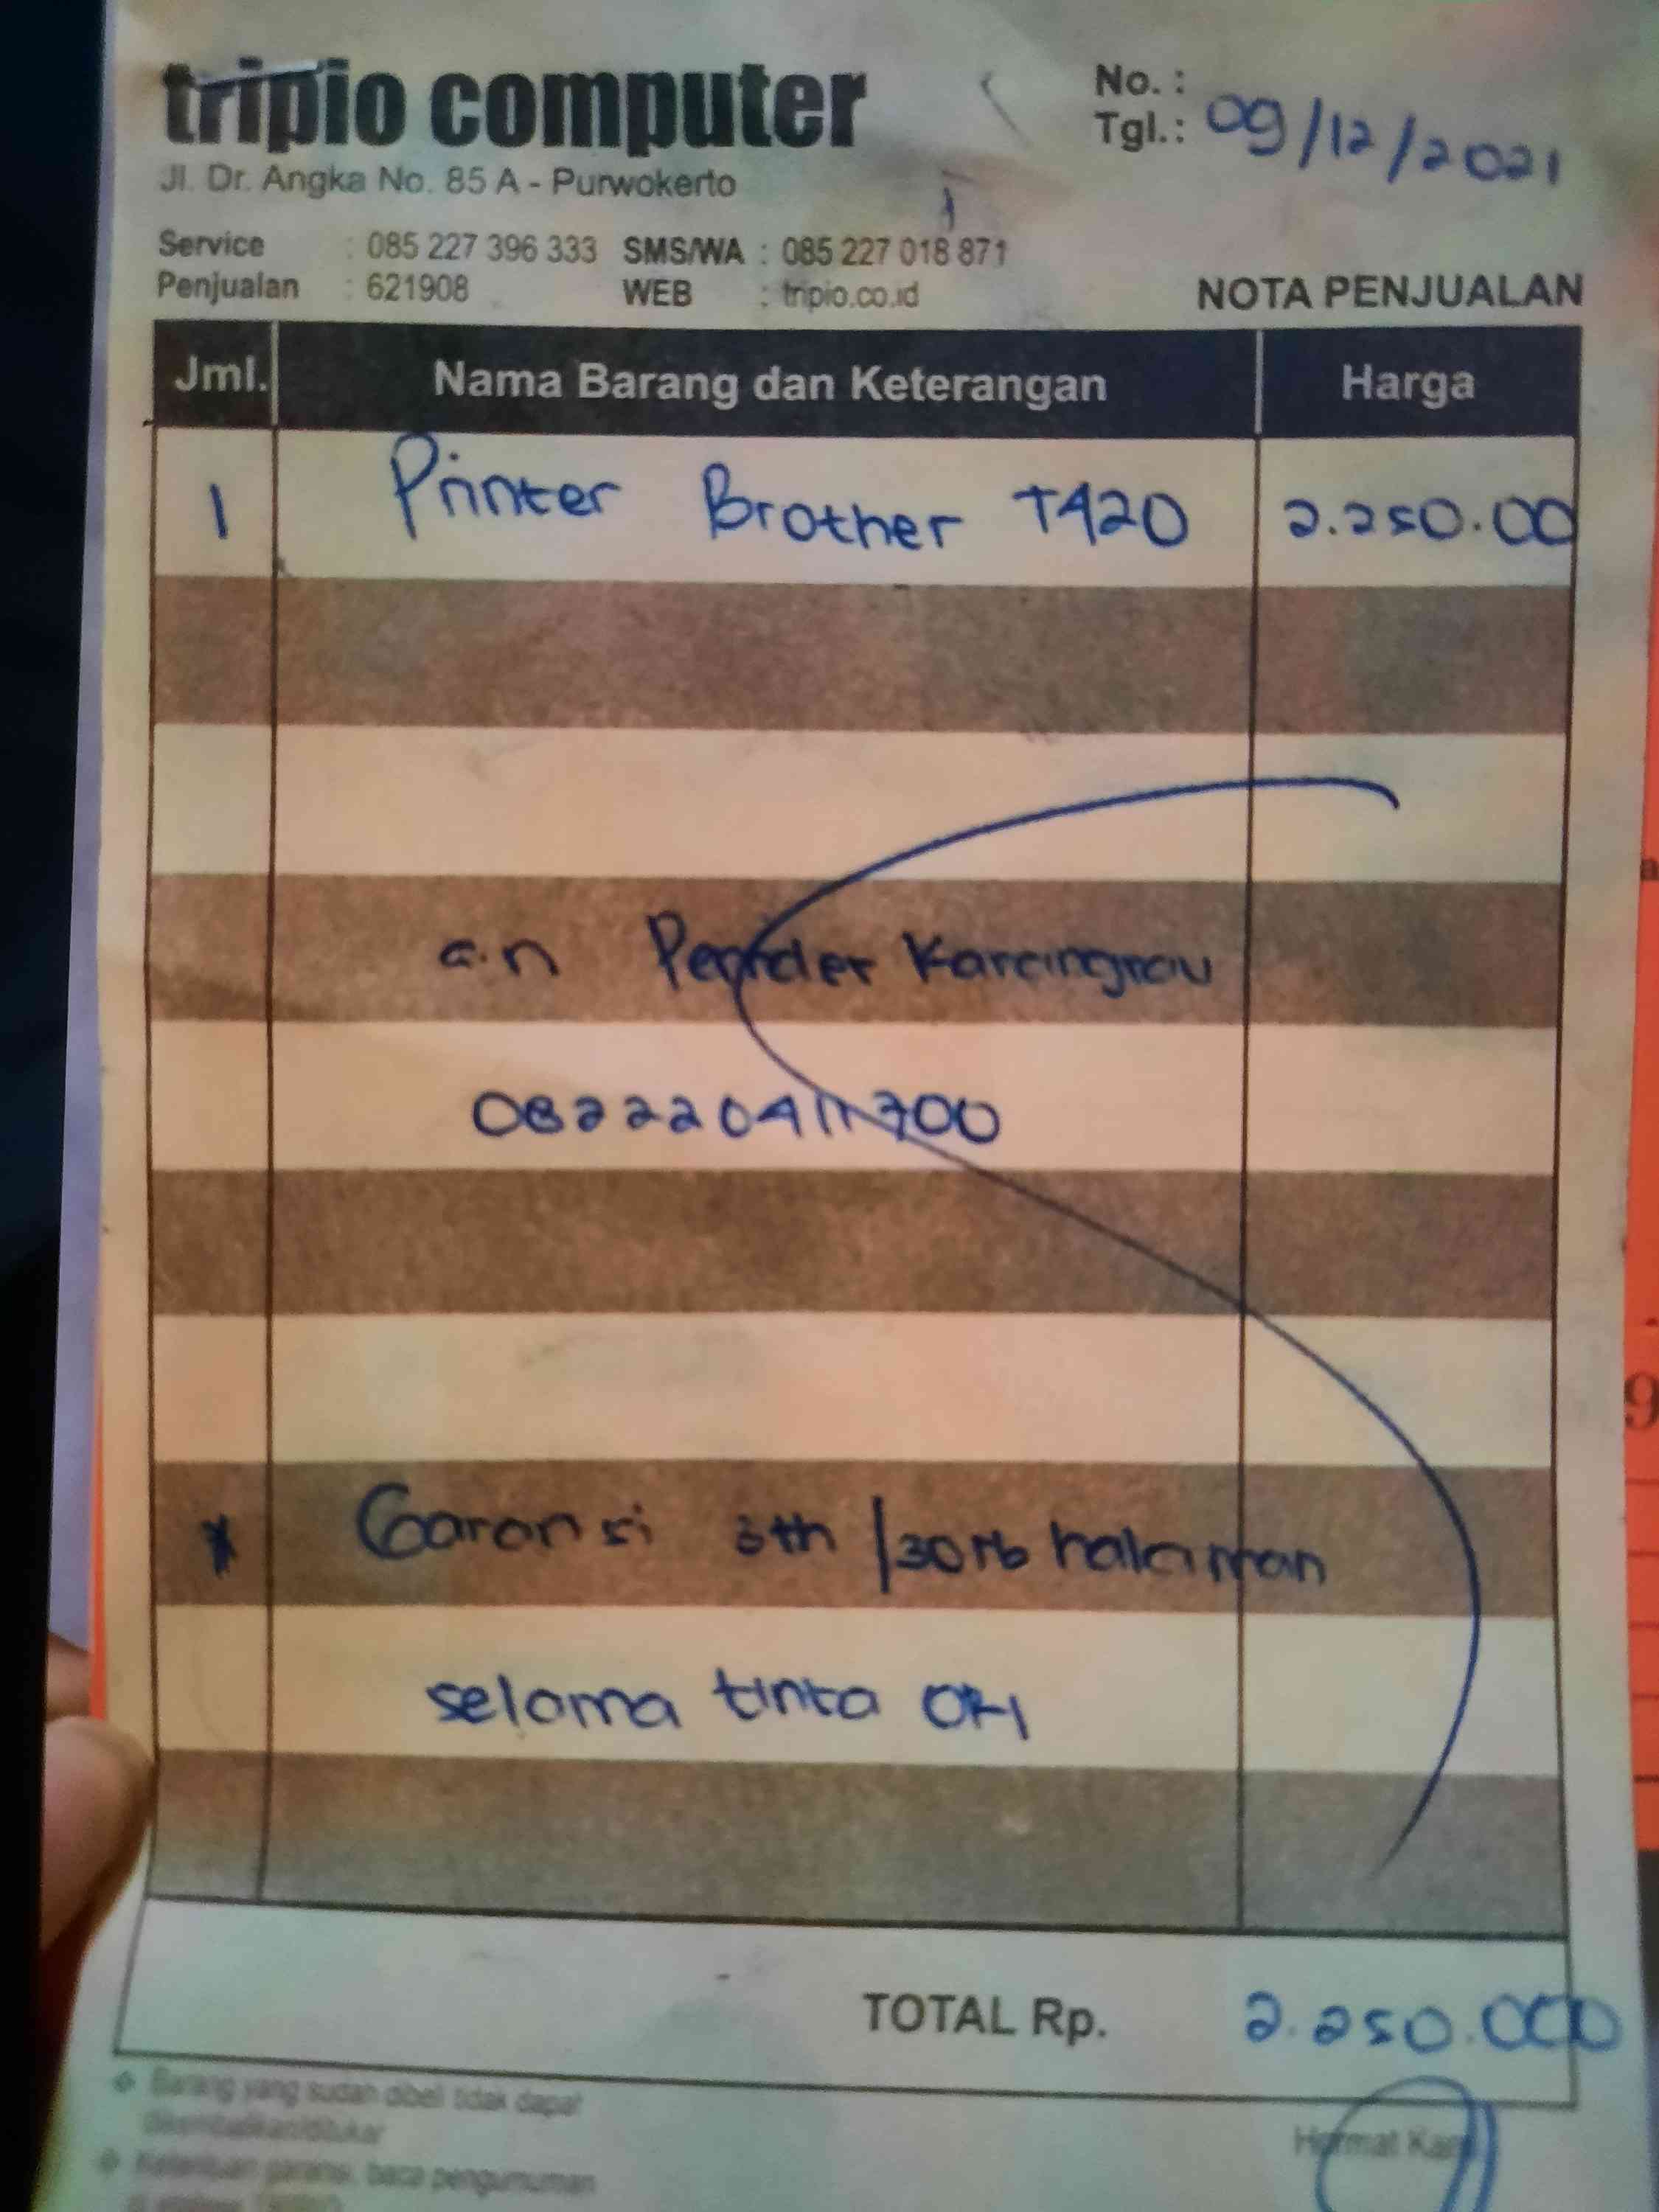 tripio computer
Jl. Dr. Angka No. 85 A - Purwokerto
No. :
Tgl.: 09/12/2021
Service : 085 227 396 333 SMS/WA : 085 227 018 871
Penjualan : 621908 WEB : tripio.co.id
NOTA PENJUALAN
Jml. Nama Barang dan Keterangan Harga
1 Printer Brother T420 2.250.00
a.n
* Garansi 3th /30rb halaman
selama tinta ORI
TOTAL Rp. 2.250.000
Barang yang sudah dibeli tidak dapat
dikembalikan/ditukar
Ketentuan garansi, baca pengumuman
Hormat Kami
9